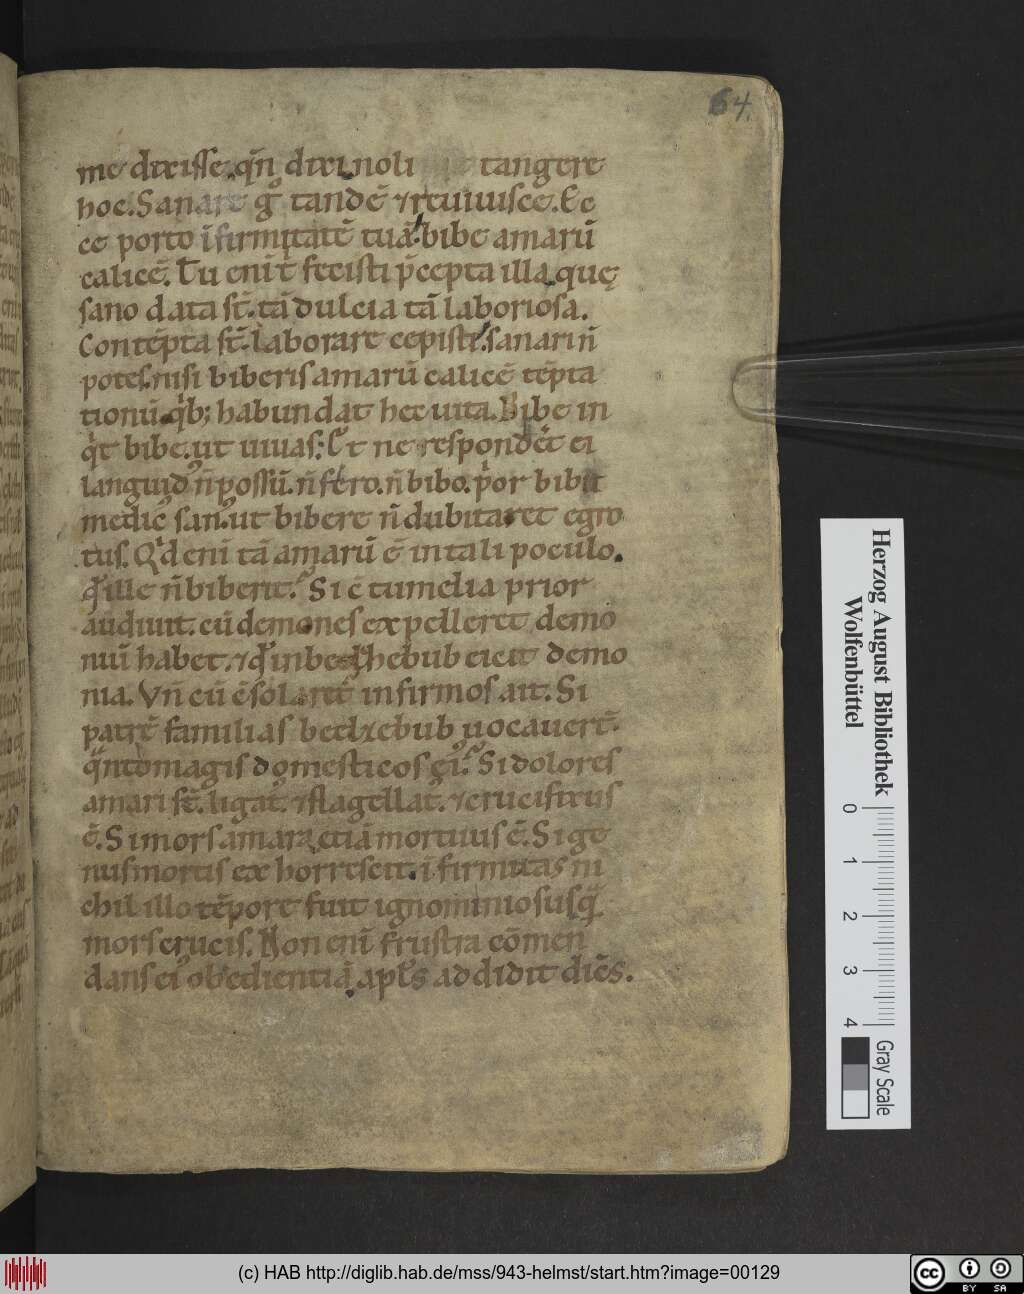 64.
me dixisse. qn̄ dixi. noli tangere
hoc. Sanare g° tandē ⁊ reuiuisce. Ec
ce porto īfirmitatē tuā. bibe amarū
calicē. Tu eni t̄ fecisti p̄cepta illa. quę
sano data st̄. tā dulcia tā laboriosa.
Contēpta st̄. laborare cepisti. sanari n̄
potes. nisi biberis amarū calicē tēpta
tionū. qͥb; habundat hec uita. Bibe in
qͥt bibe. ut uiuas. Et ne respondēt ei
languid᷒ n̄ possū. n̄ fero. n̄ bibo. pͥor bibit
medic᷒ san᷒. ut bibere n̄ dubitaret egro
tus. Qͥd eni tā amarū ē in tali poculo.
qͩ ille n̄ biberit. Si c̄tumelia prior
audiuit. cū demones expelleret demo
niū habet. ⁊ qͥ in beelzhebub eicit demo
nia. Vn̄ cū c̄solaret᷒ infirmos ait. Si
patrē familias beelzebub uocauer̄t.
qͣnto magis domesticos ei᷒. Si dolores
amari st̄. ligat᷒. ⁊ flagellat᷒. ⁊ crucifixus
ē. Si mors amara etiā mortuus ē. Si ge
nus mortis exhorrescit. īfirmitas ni
chil illo tēpore fuit ignominiosus qͣ
mors crucis. Non enī frustra cōmen
dans ei᷒ obedientiā. apl̄s addidit dicēs.
Herzog August Bibliothek
Wolfenbüttel
0 1 2 3 4
Gray Scale
(c) HAB http://diglib.hab.de/mss/943-helmst/start.htm?image=00129
cc BY SA